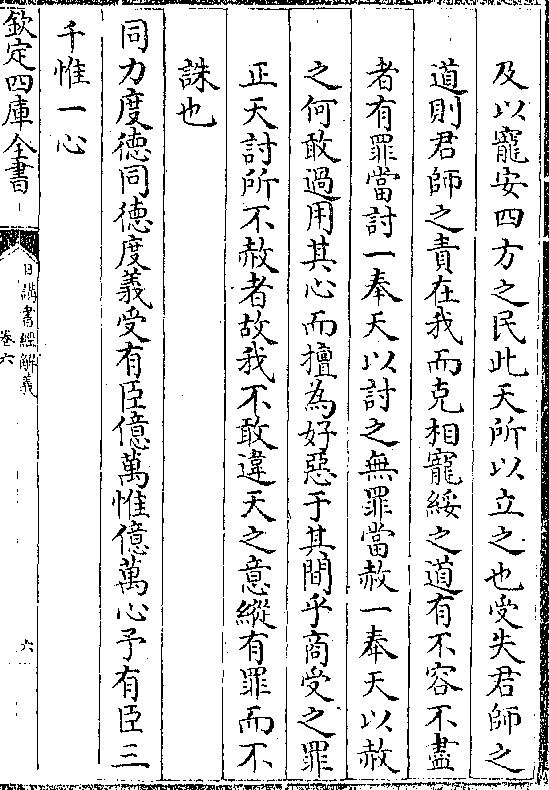 及以寵安四方之民此天所以立之也受失君師之
道則君師之責在我而克相寵綏之道有不容不盡
者有罪當討一奉天以討之無罪當赦一奉天以赦
之何敢過用其心而擅為好惡于其間乎商受之罪
正天討所不赦者故我不敢違天之意縱有罪而不
誅也
同力度德同德度義受有臣億萬惟億萬心予有臣三
千惟一心
欽定四庫全書
日講書經解義
卷六
六